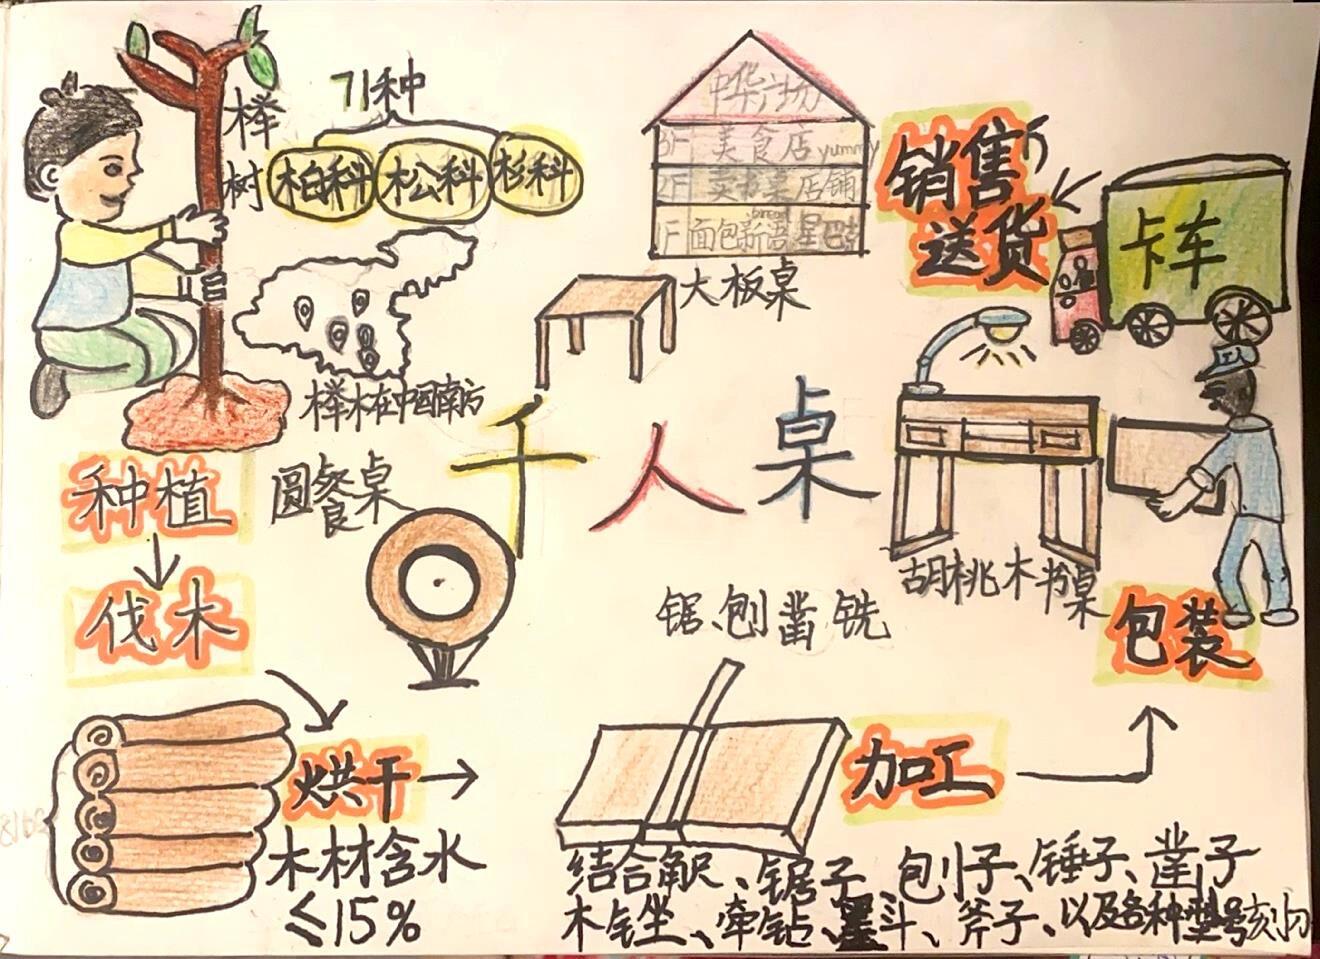 榉树
71种
柏科 松科 杉科
榉木在中国南方
种植
伐木
烘干
木材含水
≤15%
圆餐桌
千人桌
大板桌
中华广场
3F 美食店 yummy
2F 卖书桌店铺
1F 面包新语 星巴克
bread
销售
送货
卡车
胡桃木书桌
包装
锯、刨 凿 铣
加工
结合角尺、锯子、刨子、锤子、凿子
木锉、牵钻、墨斗、斧子、以及各种型号刻刀